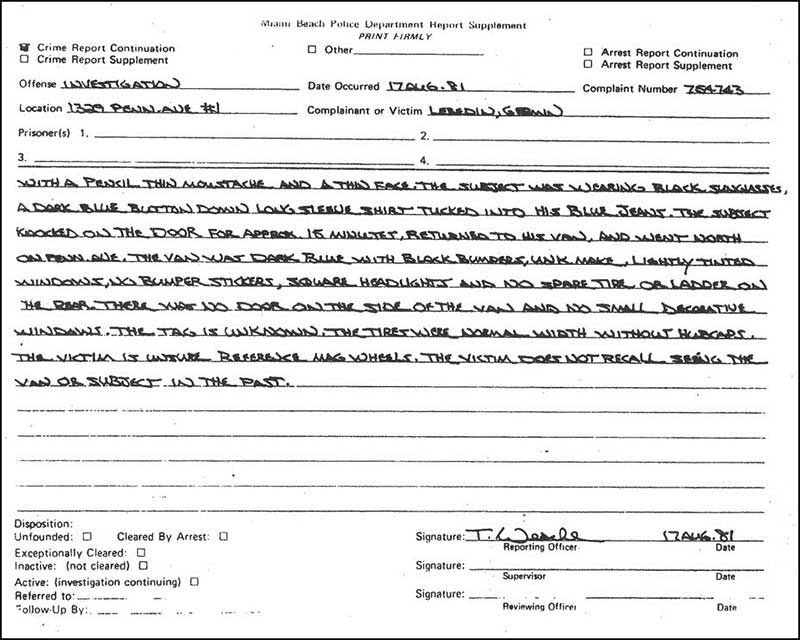 Miami Beach Police Department Report Supplement
PRINT FIRMLY
Crime Report Continuation
Crime Report Supplement
Other
Arrest Report Continuation
Arrest Report Supplement
Offense INVESTIGATION Date Occurred 17 AUG. 81 Complaint Number 754743
Location 1329 PENN. AVE #1 Complainant or Victim LEBEDIN,
Prisoner(s) 1. 2.
3. 4.
WITH A PENCIL THIN MOUSTACHE AND A THIN FACE. THE SUBJECT WAS WEARING BLACK SUNGLASSES,
A DARK BLUE BUTTON DOWN LONG SLEEVE SHIRT TUCKED INTO HIS BLUE JEANS. THE SUBJECT
KNOCKED ON THE DOOR FOR APPROX. 15 MINUTES, RETURNED TO HIS VAN, AND WENT NORTH
ON PENN. AVE. THE VAN WAS DARK BLUE WITH BLACK BUMPERS, UNK MAKE, LIGHTLY TINTED
WINDOWS, NO BUMPER STICKERS, SQUARE HEADLIGHTS AND NO SPARE TIRE OR LADDER ON
THE REAR. THERE WAS NO DOOR ON THE SIDE OF THE VAN AND NO SMALL DECORATIVE
WINDOWS. THE TAG IS UNKNOWN. THE TIRES WERE NORMAL WIDTH WITHOUT HUBCAPS.
THE VICTIM IS UNSURE REFERENCE MAG WHEELS. THE VICTIM DOES NOT RECALL SEEING THE
VAN OR SUBJECT IN THE PAST.
Disposition:
Unfounded: Cleared By Arrest:
Exceptionally Cleared:
Inactive: (not cleared)
Active: (investigation continuing)
Referred to:
Follow-Up By:
Signature: 17 AUG. 81
Reporting Officer Date
Signature:
Supervisor Date
Signature:
Reviewing Officer Date